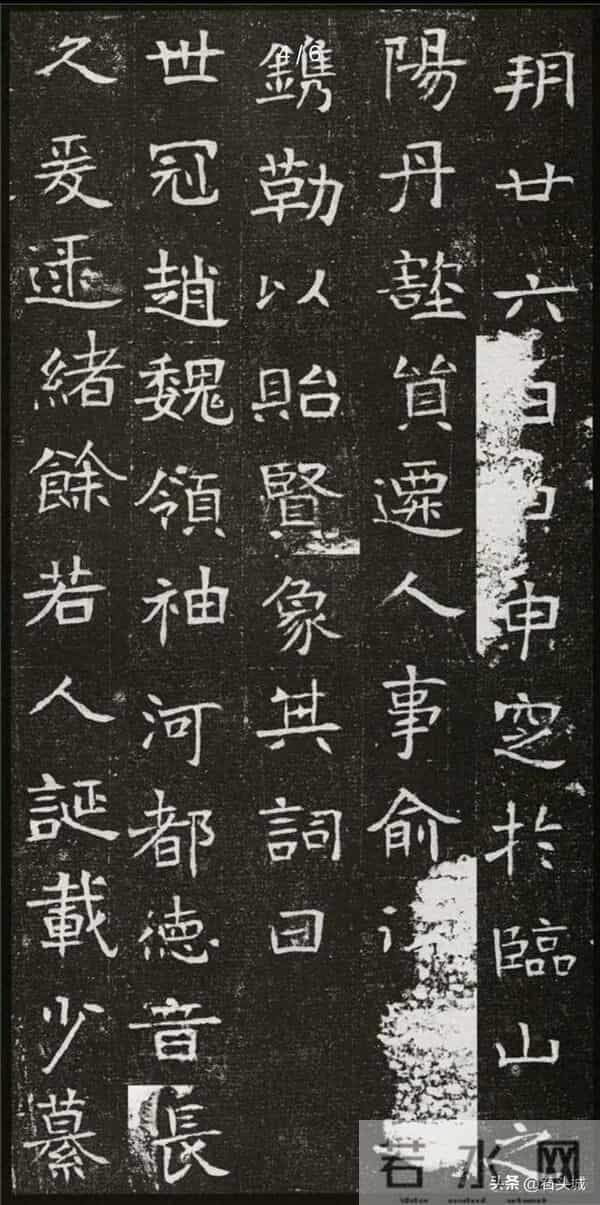 朔廿六日申窆於臨山之
陽丹壑質遷人事俞
鐫勒以貽賢象其詞曰
世冠趙魏領袖河都德音長
久爰逮緒餘若人誕載少慕
4/6
若水网
头条@宿头城